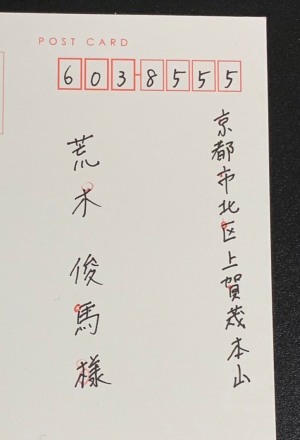 POST CARD
603-8555
京都市北区上賀茂本山
荒木俊馬様